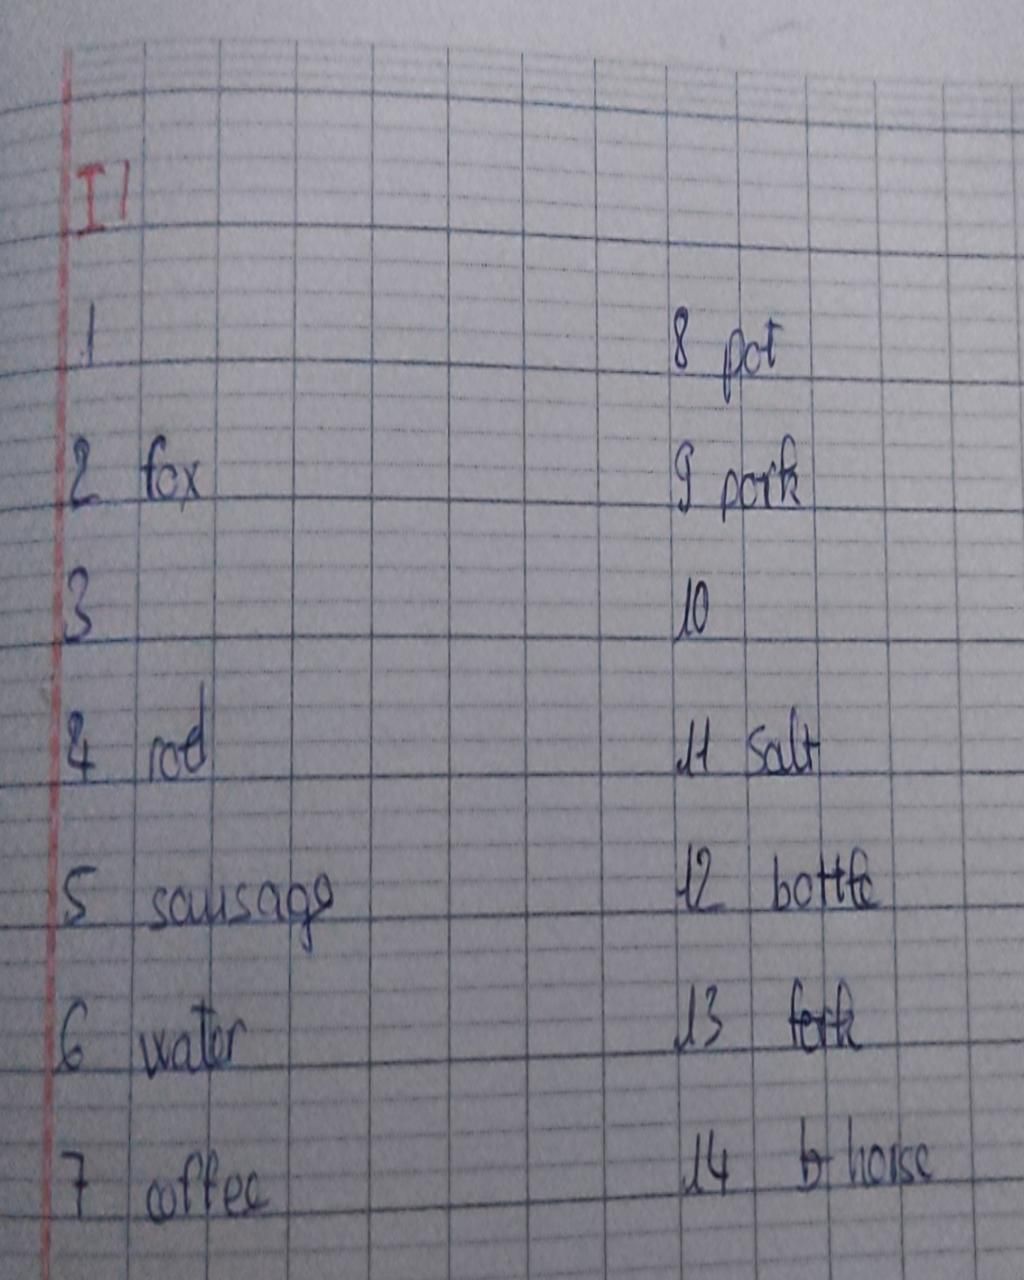 I/
1
2 fox
3
4 rod
5 sausage
6 water
7 coffee
8 pot
9 pork
10
11 salt
12 bottle
13 fork
14 horse